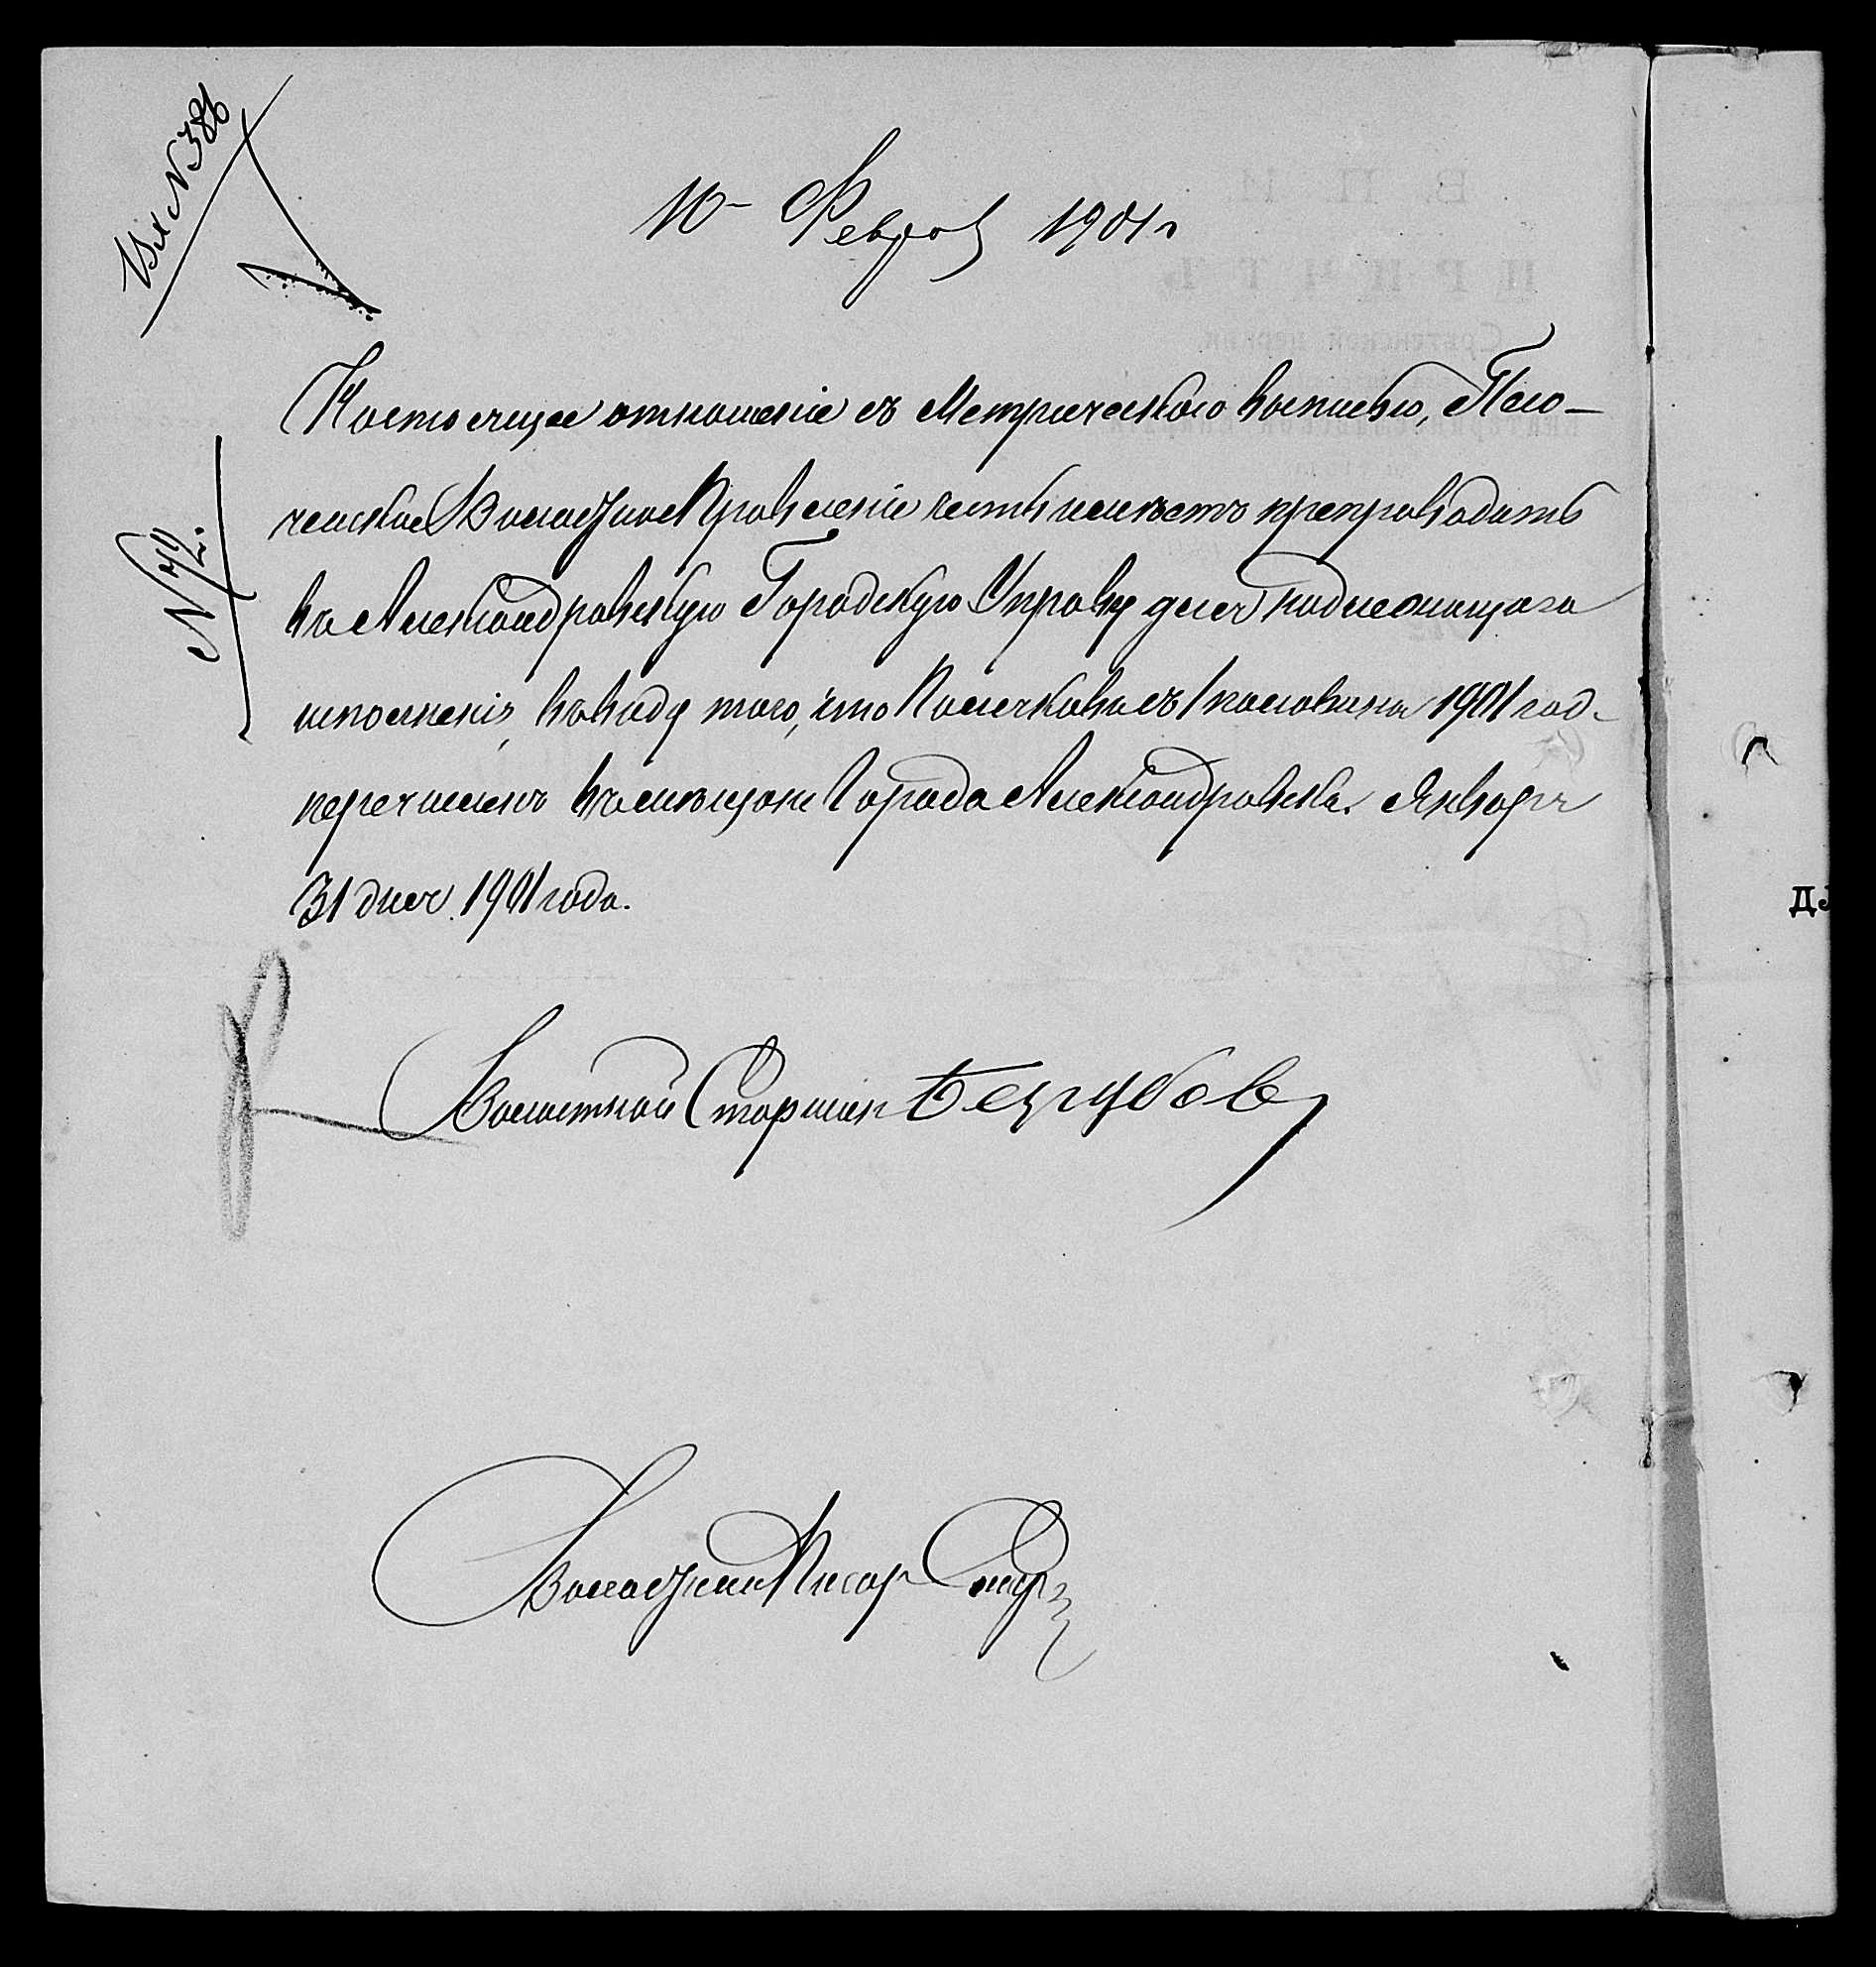 Вх N 386
10 Февра 1901 г
Настоящее отношеніе съ Метрическою выписью,
Волостное Правленіе честь имѣетъ препроводить
N 72.
въ Александровскую Городскую Управу для надлежащаго
исполненія, ввиду того, что съ 1 половины 1901 год
перечисленъ въ мѣщане Города Александровска. Января
31 дня 1901 года.
Волостной Старшин
Волостной Писар